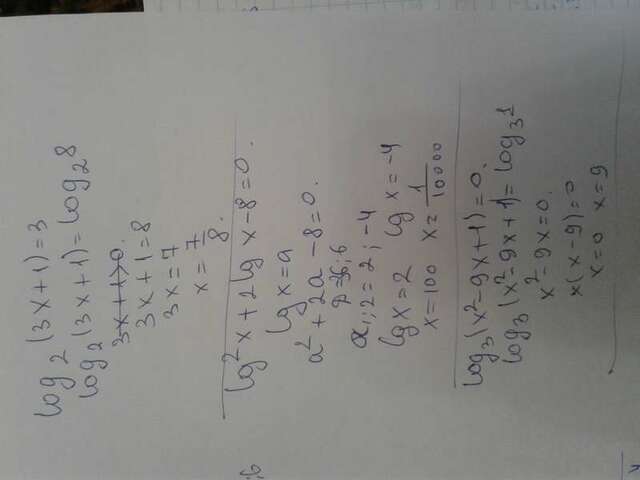 log₂(3x+1)=3
log₂(3x+1)=log₂8
3x+1>0.
3x+1=8
3x=7
x=7/8.
lg²x+2lg x-8=0.
lg x=a
a²+2a-8=0.
a₁;₂=2;-4
lg x=2 lg x=-4
x=100 x=1/10000
log₃(x²-9x+1)=0.
log₃(x²-9x+1)=log₃1
x²-9x=0.
x(x-9)=0
x=0 x=9